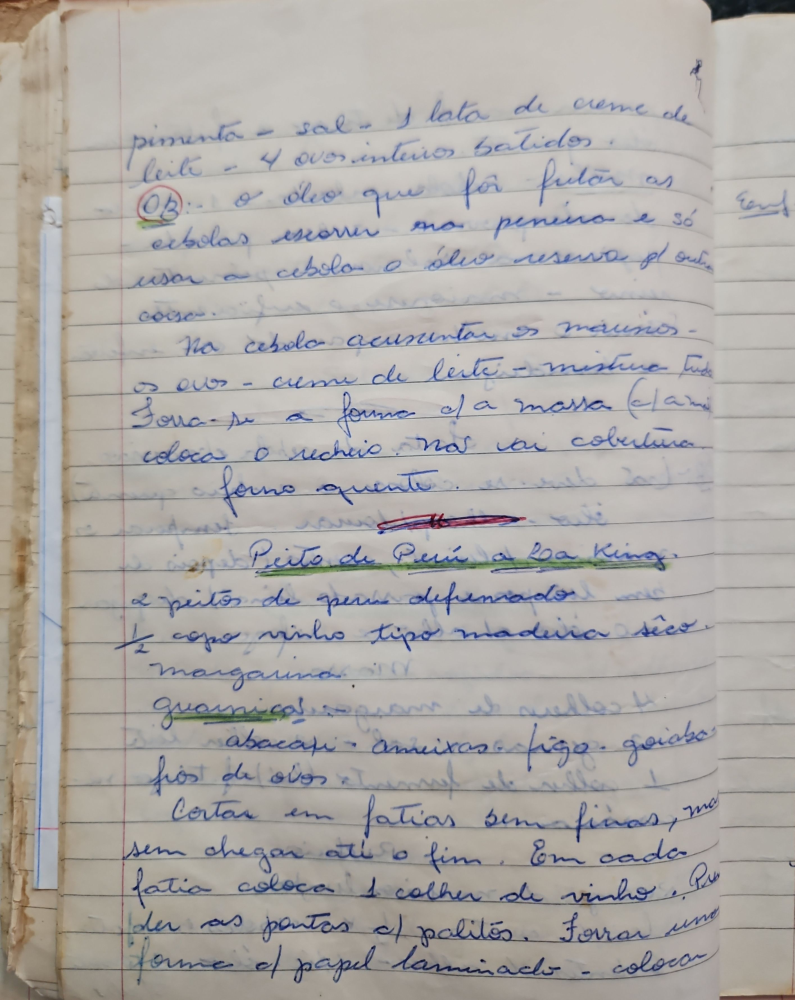 pimenta - sal - 1 lata de creme de
leite - 4 ovos inteiros batidos.
OB:- o óleo que fôr fritar as
cebolas escorrer na peneira e só
usar a cebola o óleo reserva p/ outra
coisa.
Na cebola acrescentar os mariscos -
os ovos - creme de leite - mistura tudo
Forra-se a forma c/ a massa (c/ a
coloca o recheio. não vai cobertura
forno quente.
Peito de Perú a La King.
2 peitos de peru defumado
1/2 copo vinho tipo madeira sêco.
margarina.
guarnição:
abacaxi - ameixas - figo - goiaba
fios de ovos.
Cortar em fatias bem finas, mas
sem chegar até o fim. Em cada
fatia coloca 1 colher de vinho. Pren
der as pontas c/ palitos. Forrar uma
forma c/ papel laminado - colocar